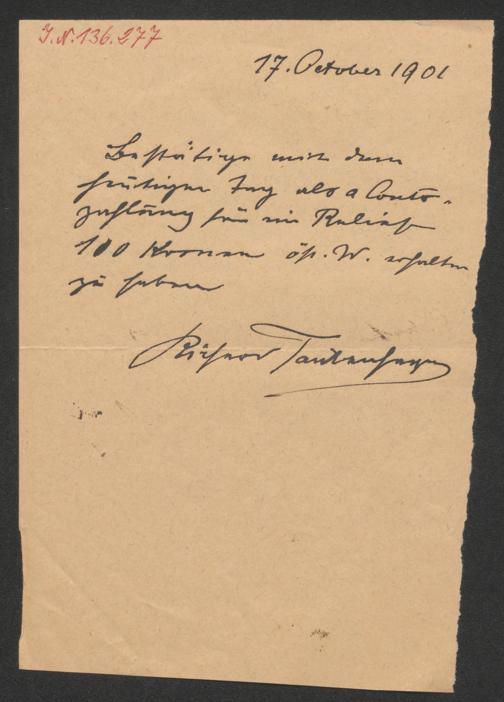 J.N. 136.277
17. October 1901
Bestätige mit dem
heutigen Tag als a Conto-
zahlung für ein Relief
100 Kronen öst. W. erhalten
zu haben
Richard Tautenhayn